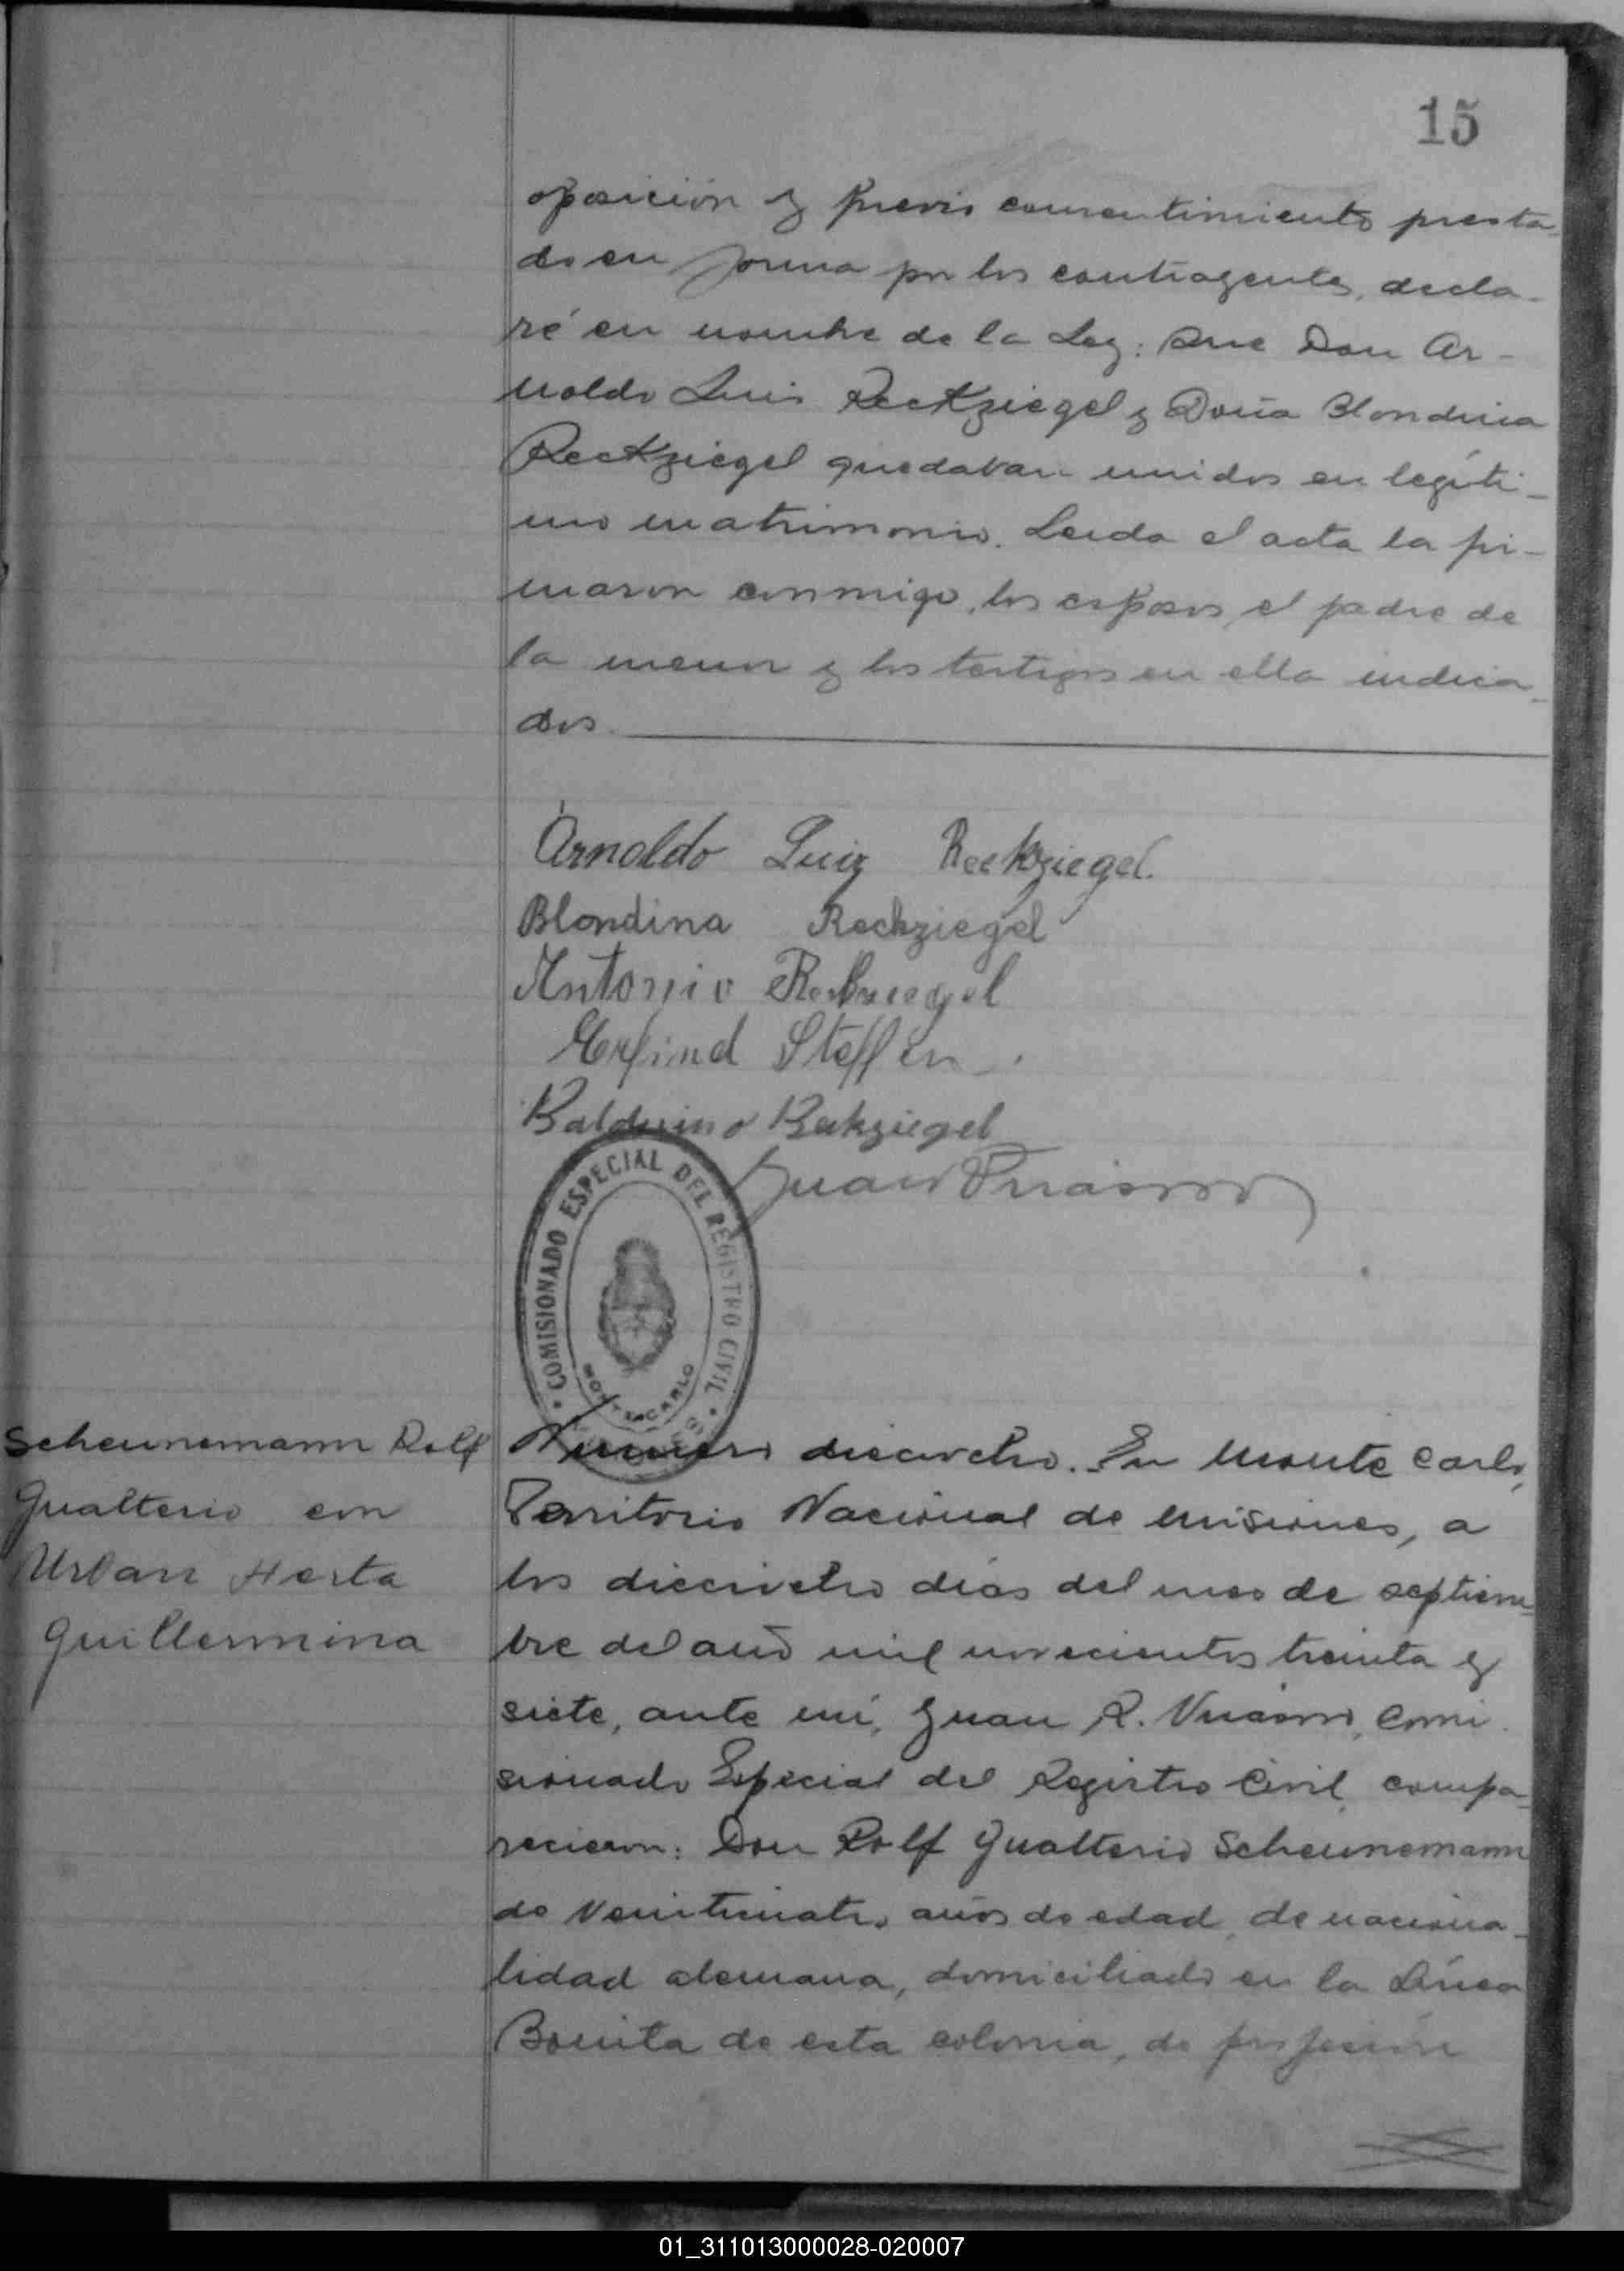 15
oposición y previo consentimiento presta-
do en forma por los contrayentes, decla-
ré en nombre de la Ley: Que Don Ar-
noldo Luis Reckziegel y Doña Blondina
Reckziegel quedaban unidos en legíti-
mo matrimonio. Leida el acta la fir-
maron conmigo, los esposos, el padre de
la menor y los testigos en ella indica-
dos.
Arnoldo Luiz Reckziegel.
Blondina Reckziegel
Antonio Reckziegel
Steffen
Balduino Reckziegel
Juan
COMISIONADO ESPECIAL DEL REGISTRO CIVIL
MONTECARLO
Scheunemann Rolf
Gualterio con
Urban Herta
Guillermina
Numero dieciocho. En Monte Carlo,
Territorio Nacional de Misiones, a
los dieciocho dias del mes de septiem-
bre del año mil novecientos treinta y
siete, ante mi, Juan R. Comi-
sionado Especial del Registro Civil, compa-
recieron: Don Rolf Gualterio Scheunemann
de veinticuatro años de edad, de naciona-
lidad alemana, domiciliado en la Línea
Bonita de esta colonia, de profesión
01_311013000028-020007